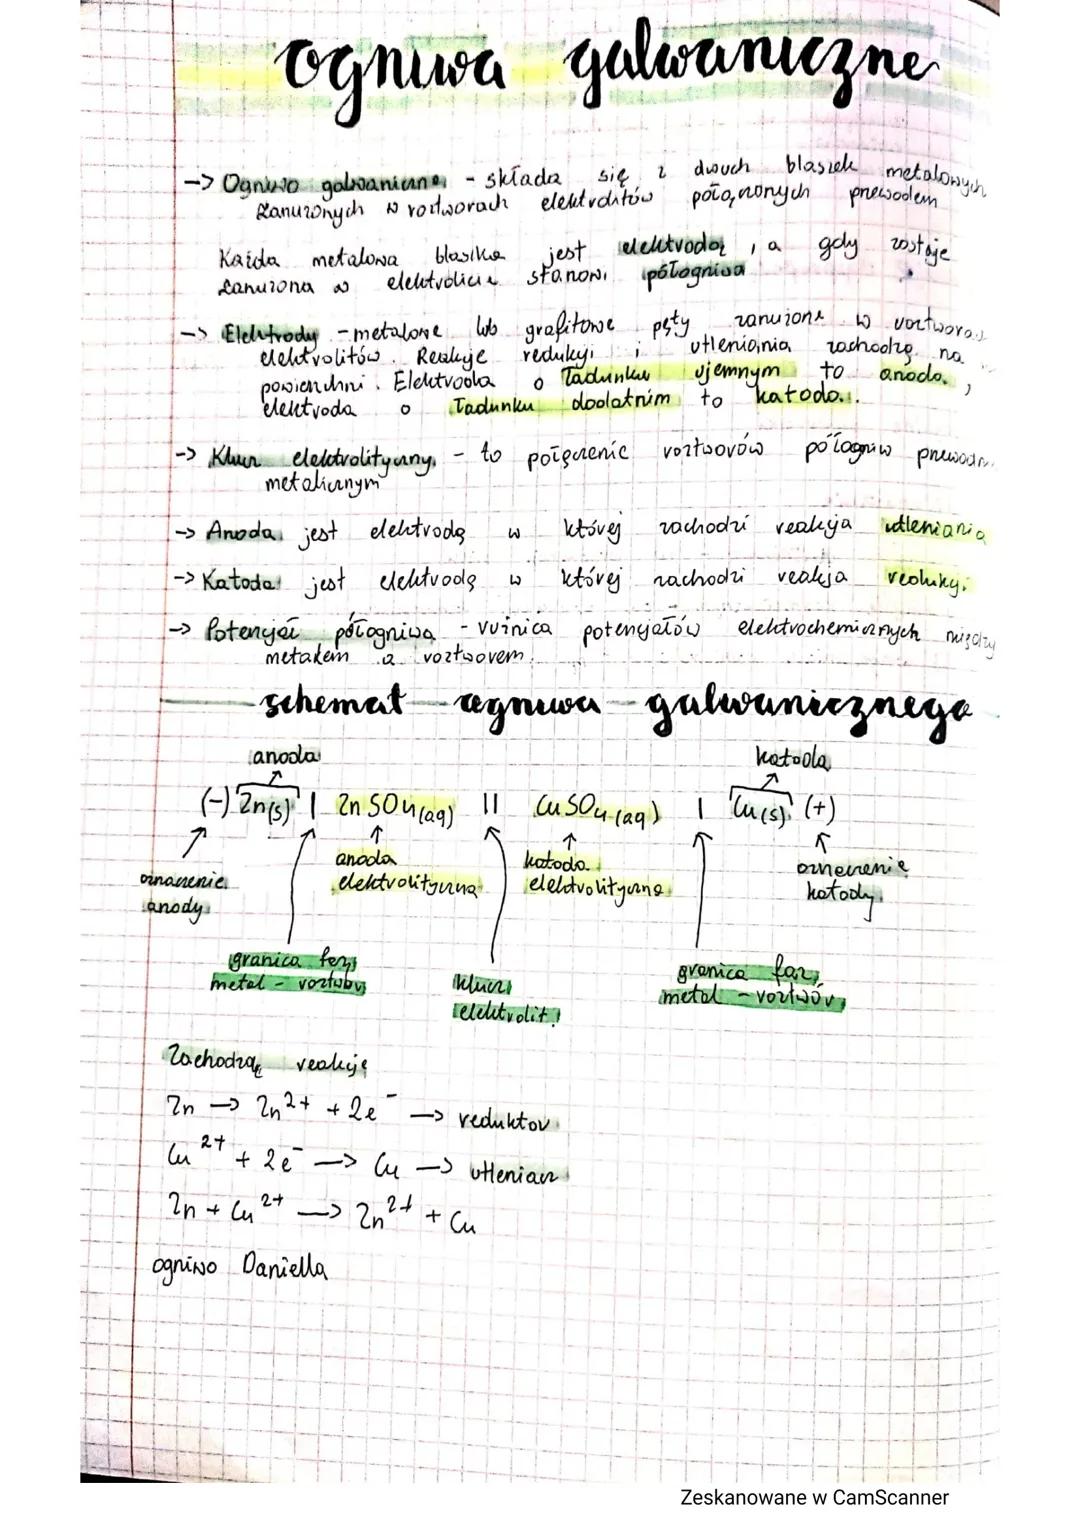 ogniwa galwaniczne
-> Ogniwo galwaniczne - składa się z dwuch blaszek metalowych
zanurzonych w roztworach elektrolitów połączonych przewodem
Każda metalowa blaszka jest elektrodą, a gdy zostaje
zanurzona w elektrolicie stanowi półogniwa
-> Elektrody - metalowe lub grafitowe pęty zanurzone w roztwora
elektrolitów. Reakcje redukcji i utleniania zachodzą na
powierzchni. Elektroda o ładunku ujemnym to anoda,
elektroda o ładunku dodatnim to katoda.
-> Klucz elektrolityczny - to połączenie roztworów półogniw przewodn
metalicznym
-> Anoda jest elektrodą w której zachodzi reakcja utleniania
-> Katoda jest elektrodą w której zachodzi reakcja redukcji
-> Potencjał półogniwa - różnica potencjałów elektrochemicznych między
metalem a roztworem
schemat ogniwa galwanicznego
anoda katoda
(-) Zn(s) | ZnSO4(aq) || CuSO4(aq) | Cu(s) (+)
oznaczenie anody
anoda elektrolityczna
katoda elektrolityczna
oznaczenie katody
granica faz metal - roztwór
klucz elektrolit
granica faz metal - roztwór
Zachodzą reakcje
Zn -> Zn2+ + 2e- -> reduktor
Cu2+ + 2e- -> Cu -> utleniacz
Zn + Cu2+ -> Zn2+ + Cu
ogniwo Daniella
Zeskanowane w CamScanner